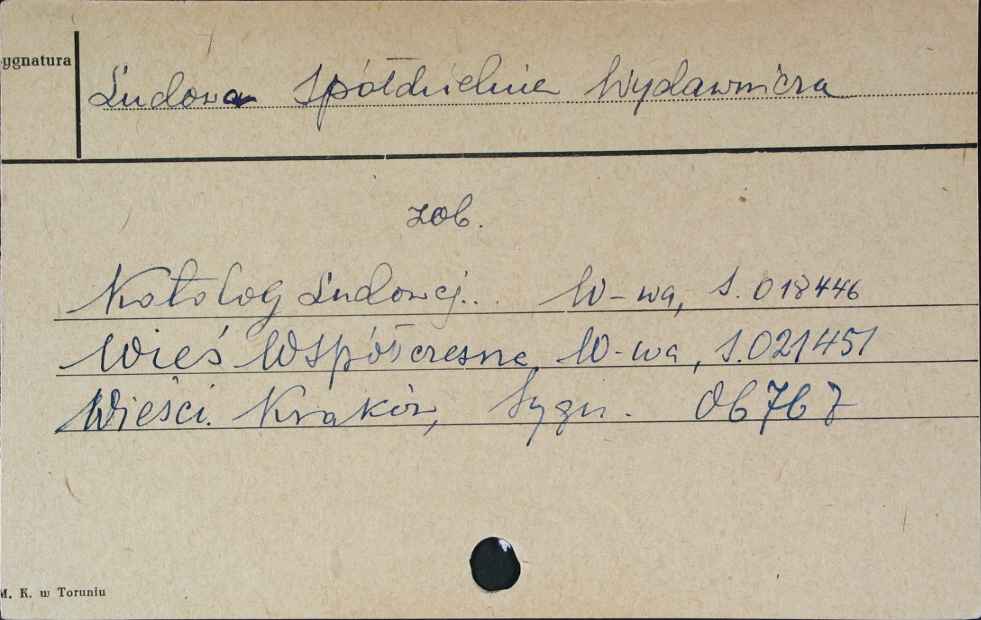 ygnatura
Ludowa Spółdzielnia Wydawnicza
zob.
Katolog Ludowej... W-wa, S. 018446
Wieś Współczesna, W-wa, S. 021451
Wieści. Kraków, Sygn. 06767
M. K. w Toruniu